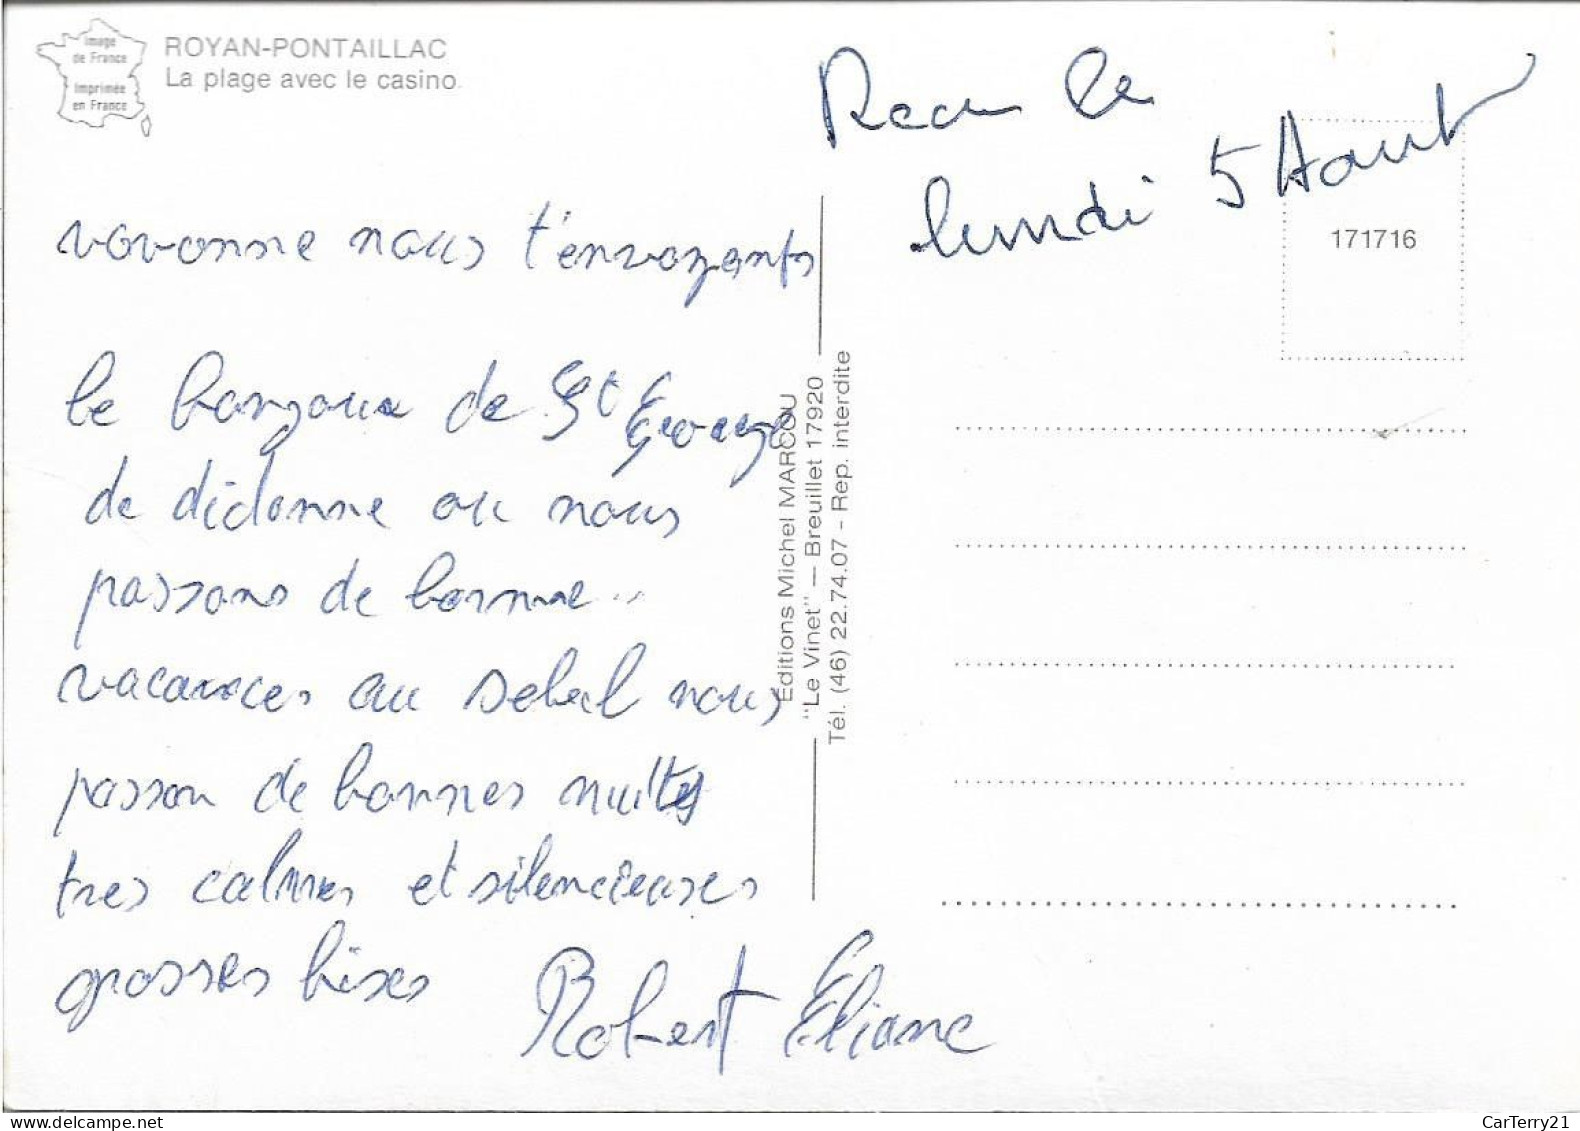 Image
de France
Imprimée
en France
ROYAN-PONTAILLAC
La plage avec le casino
Recu le
lundi 5 Aout
171716
vovonne nous t'envoyonts
le bonjoure de St George
de didonne ou nous
passons de bonne..
vacances au soleil nous
passon de bonnes nuites
tres calmes et silencieuses
grosses bises
Robert Éliane
Éditions Michel MARCOU
"Le Vinet" — Breuillet 17920
Tél. (46) 22.74.07 - Rep. interdite
delcampe.net
CarTerry21